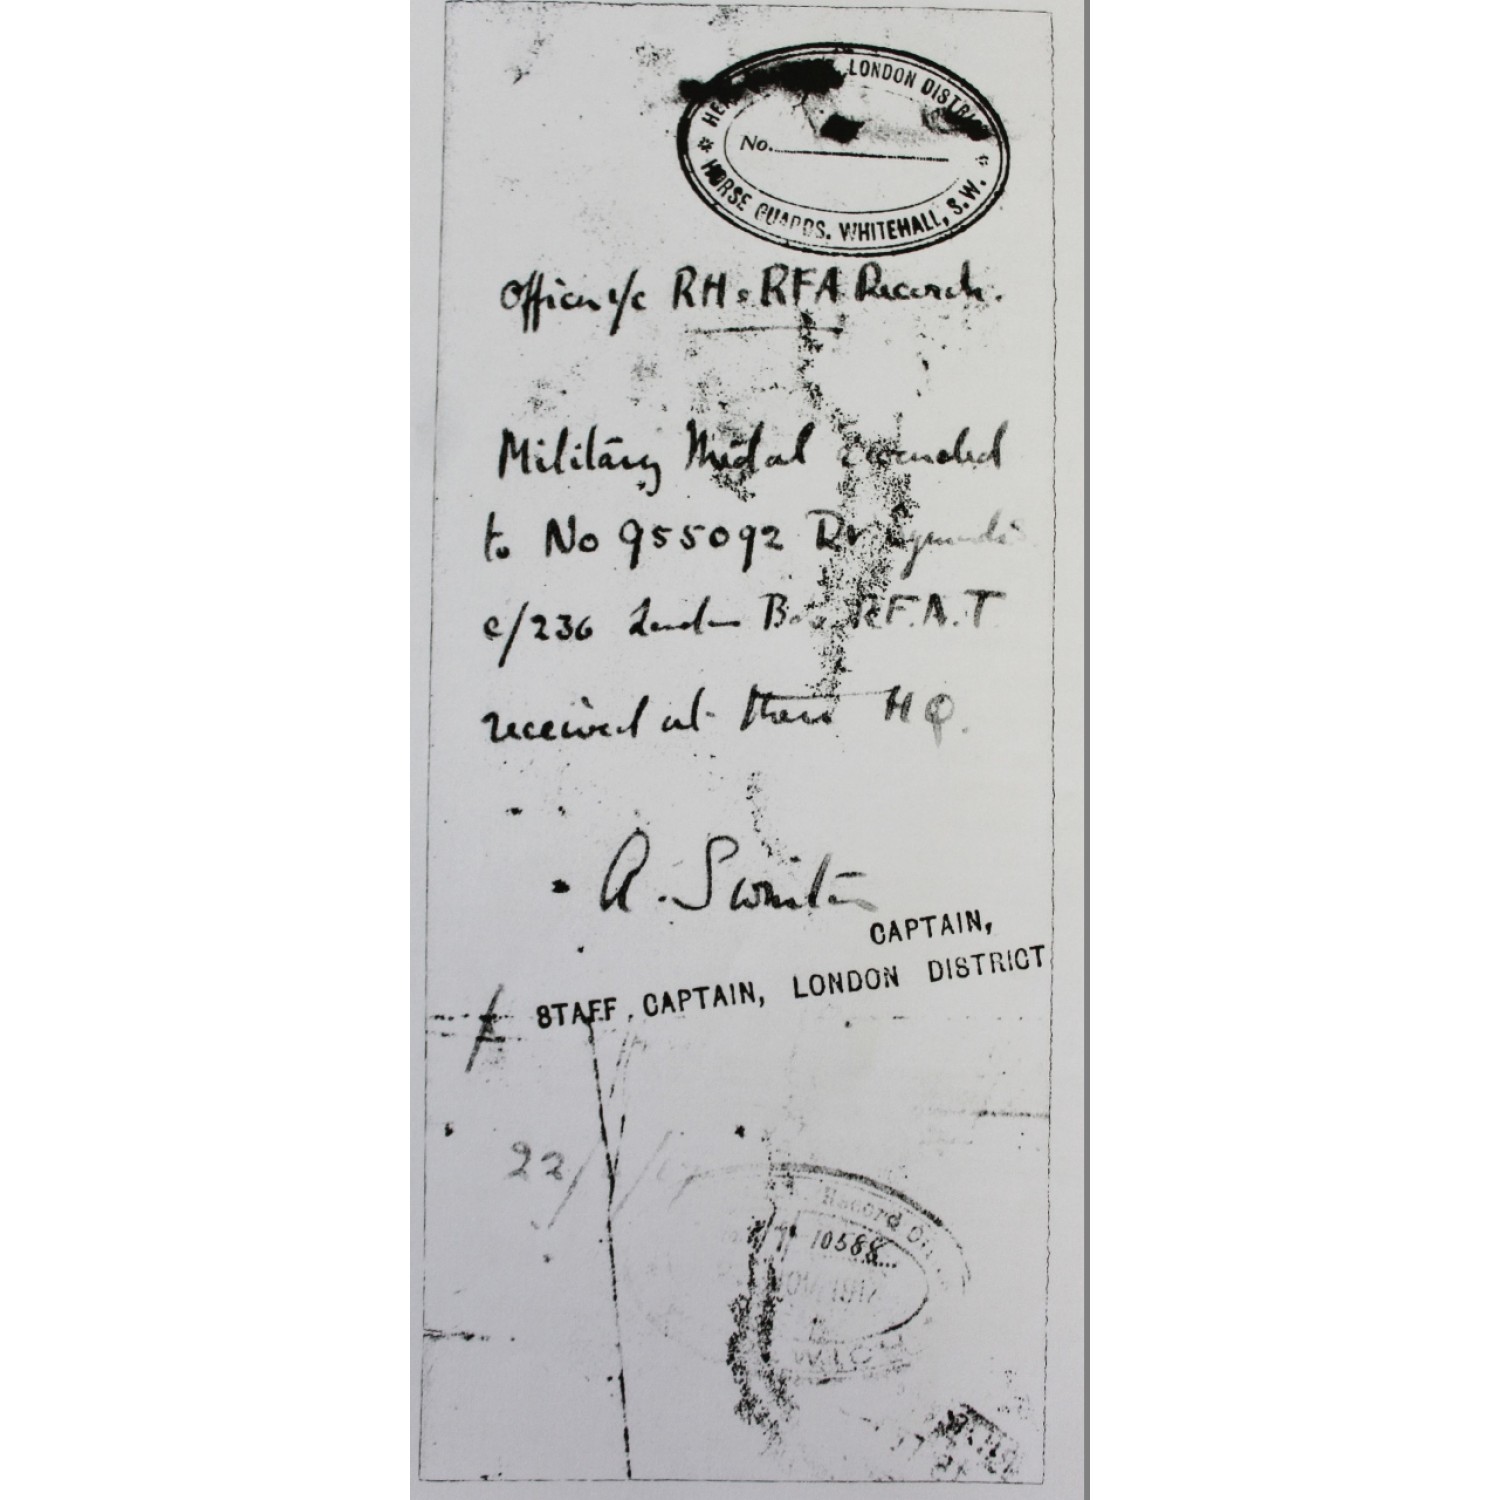 LONDON DISTRICT
No.
HORSE GUARDS. WHITEHALL, S.W.
Officer i/c RH & RFA Records.
Military Medal awarded
to No 955092 Dr
C/236 London Bde RFA.T
received at these HQ.
A. Swinton
CAPTAIN,
STAFF CAPTAIN, LONDON DISTRICT
22/
Record
10588